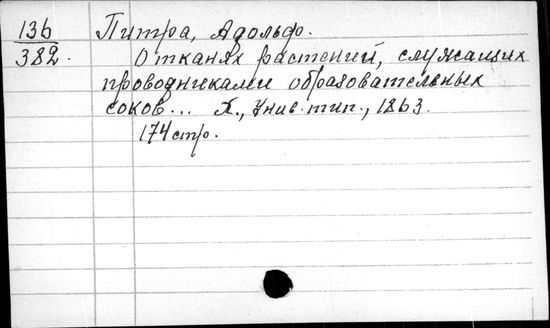 136 Питра, Адольф.
382. О тканях растений, служащих
проводниками образовательных
соков... Х., Унив. тип., 1863.
174 стр.